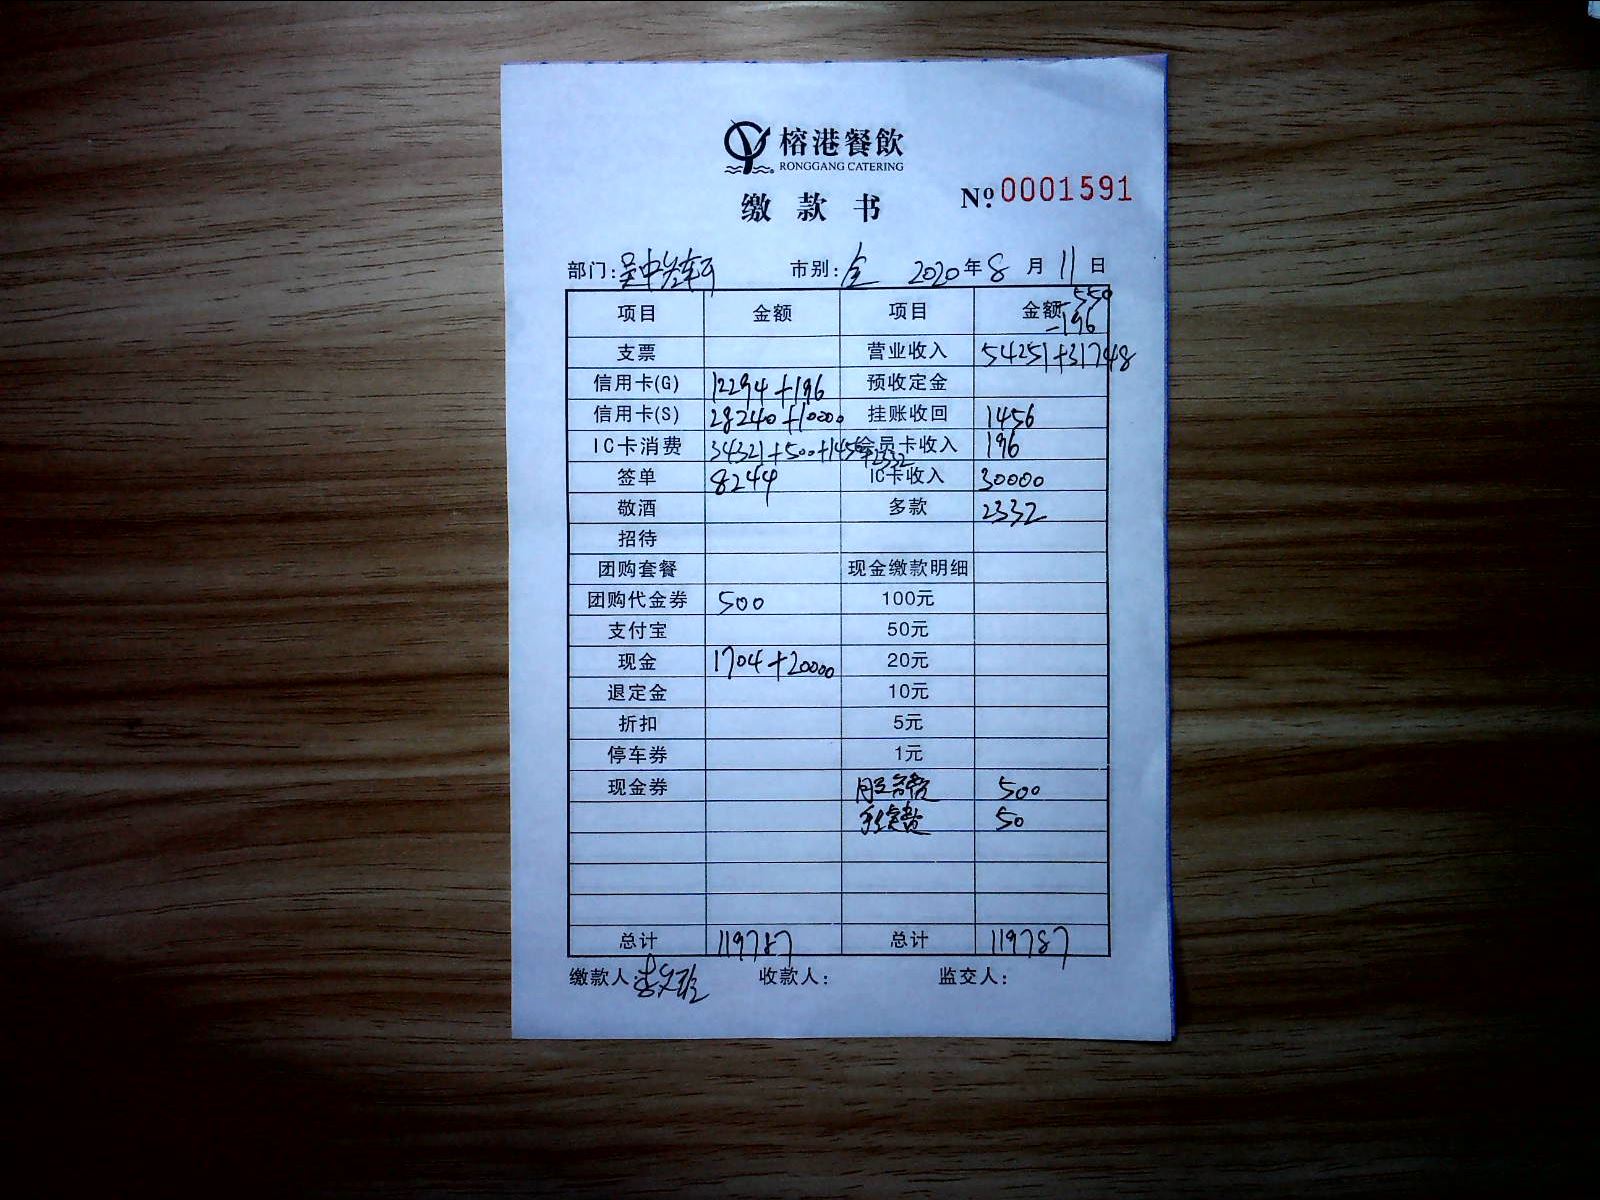 榕港餐飲
RONGGANG CATERING
缴款书 Nº 0001591
部门:吴中 市别:全 2020年8月11日
项目 金额 项目 金额 -550
-196
支票 营业收入 54251+31748
信用卡(G) 12294+196 预收定金
信用卡(S) 28240+10000 挂账收回 1456
IC卡消费 34321+500+1456+2332 会员卡收入 196
签单 8244 IC卡收入 30000
敬酒 多款 2332
招待
团购套餐 现金缴款明细
团购代金券 500 100元
支付宝 50元
现金 1704+20000 20元
退定金 10元
折扣 5元
停车券 1元
现金券 服务费 500
手续费 50
总计 119787 总计 119787
缴款人: 收款人: 监交人: